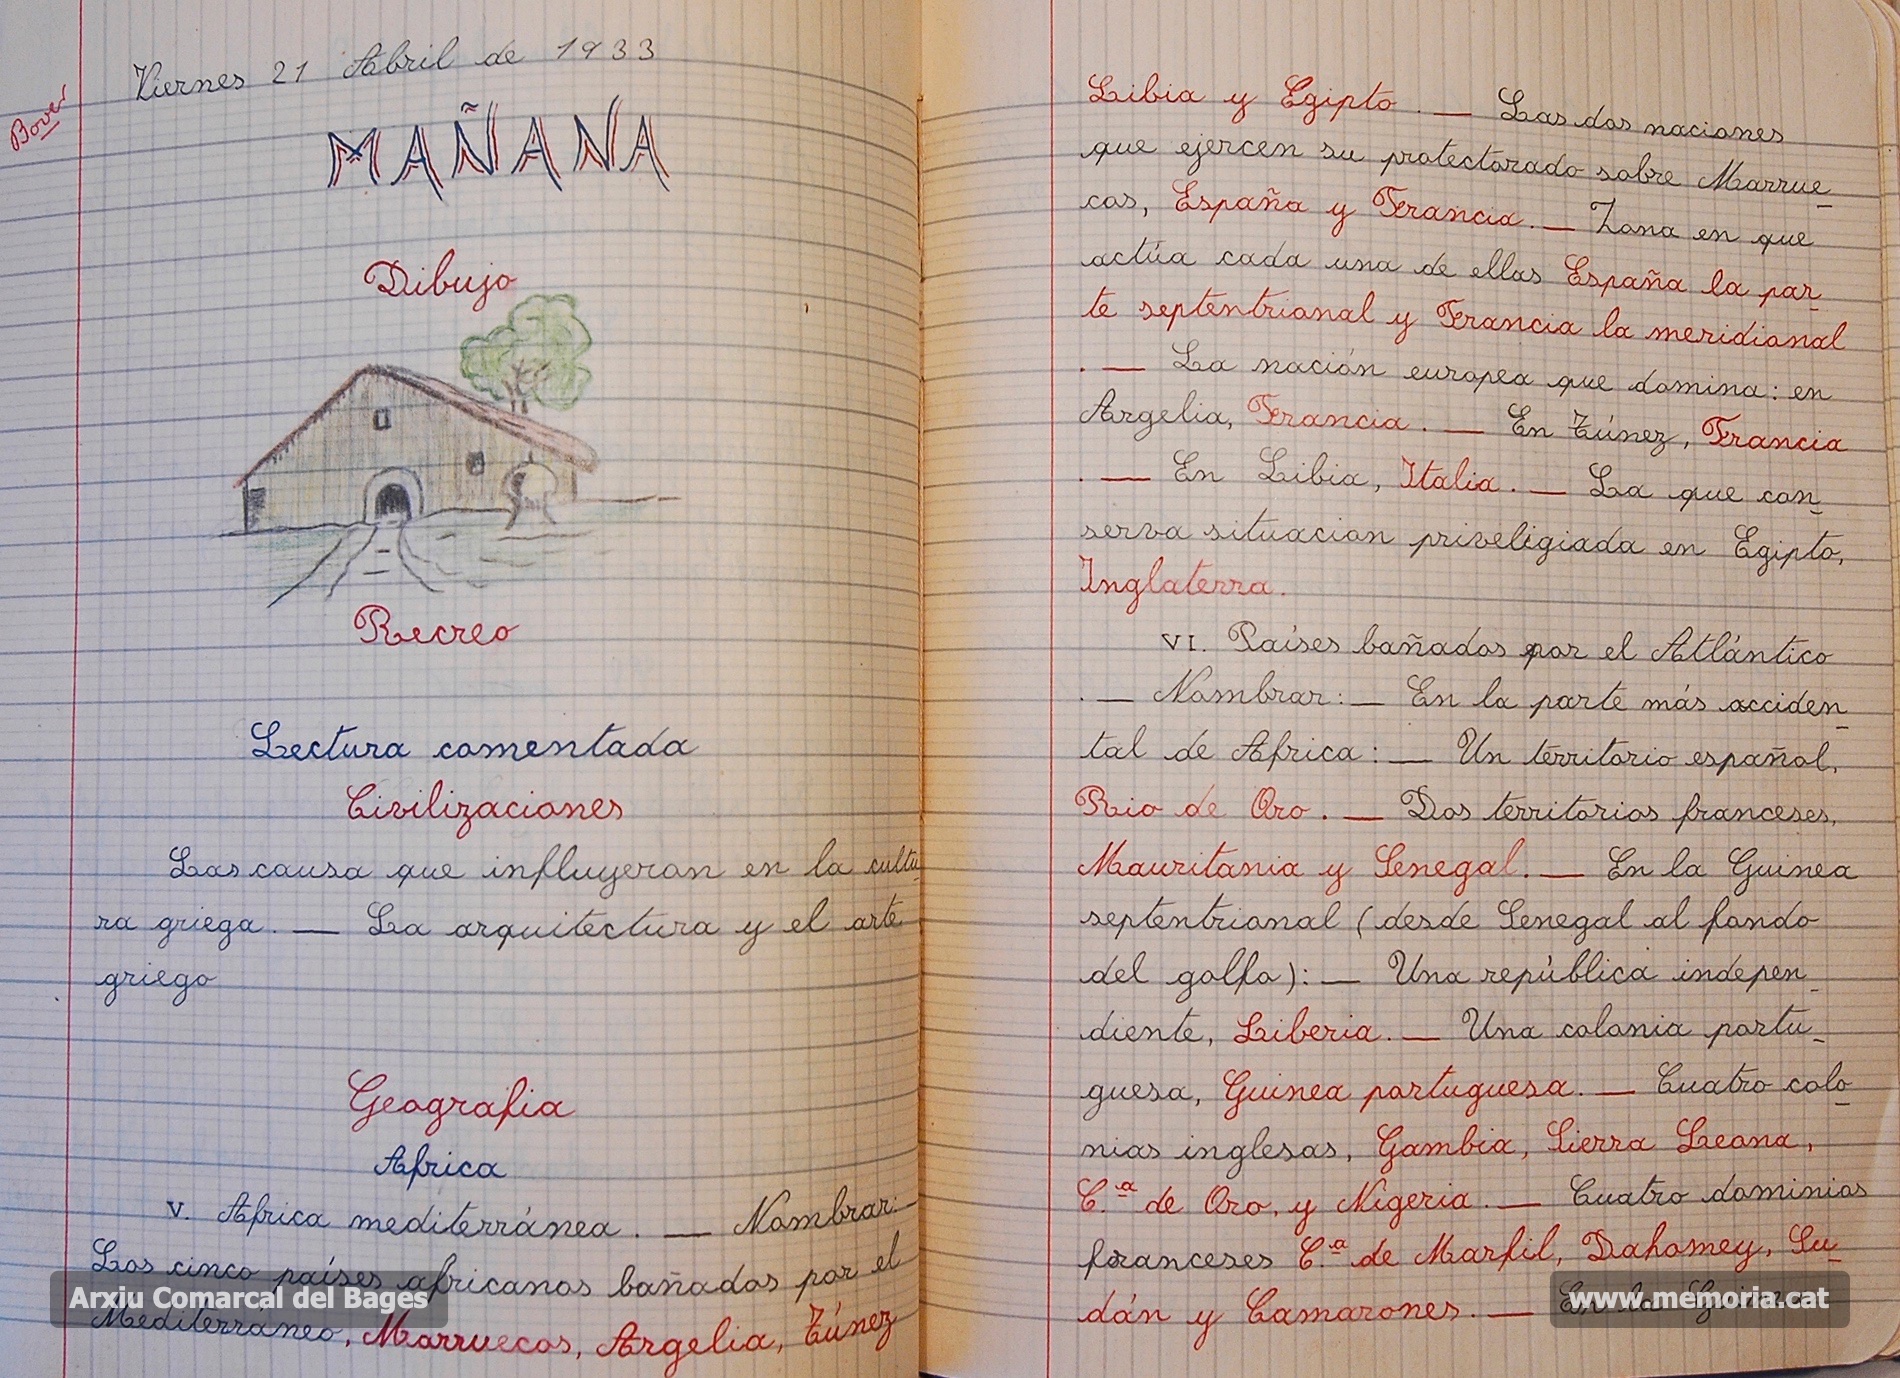 Viernes 21 Abril de 1933
Bover
MAÑANA
Dibujo
Recreo
Lectura comentada
Civilizaciones
Las causa que influyeron en la cultu
ra griega. — La arquitectura y el arte
griego
Geografia
Africa
V. Africa mediterránea. — Nombrar:—
Los cinco países africanos bañados por el
Mediterráneo, Marruecos, Argelia, Túnez
Libia y Egipto. — Las dos naciones
que ejercen su protectorado sobre Marrue-
cos, España y Francia. — Zona en que
actúa cada una de ellas España la par-
te septentrional y Francia la meridional
. — La nación europea que domina: en
Argelia, Francia. — En Túnez, Francia
. — En Libia, Italia. — La que con-
serva situacion priveligiada en Egipto,
Inglaterra.
VI. Países bañados por el Atlántico
. — Nombrar: — En la parte más occiden-
tal de Africa: — Un territorio español,
Rio de Oro. — Dos territorios franceses,
Mauritania y Senegal. — En la Guinea
septentrional (desde Senegal al fondo
del golfo): — Una república indepen-
diente, Liberia. — Una colonia portu-
guesa, Guinea portuguesa. — Cuatro colo-
nias inglesas, Gambia, Sierra Leona,
C.ª de Oro, y Nigeria. — Cuatro dominios
franceses C.ª de Marfil, Dahomey, Su-
dán y Camarones. — En la Guinea
Arxiu Comarcal del Bages
www.memoria.cat